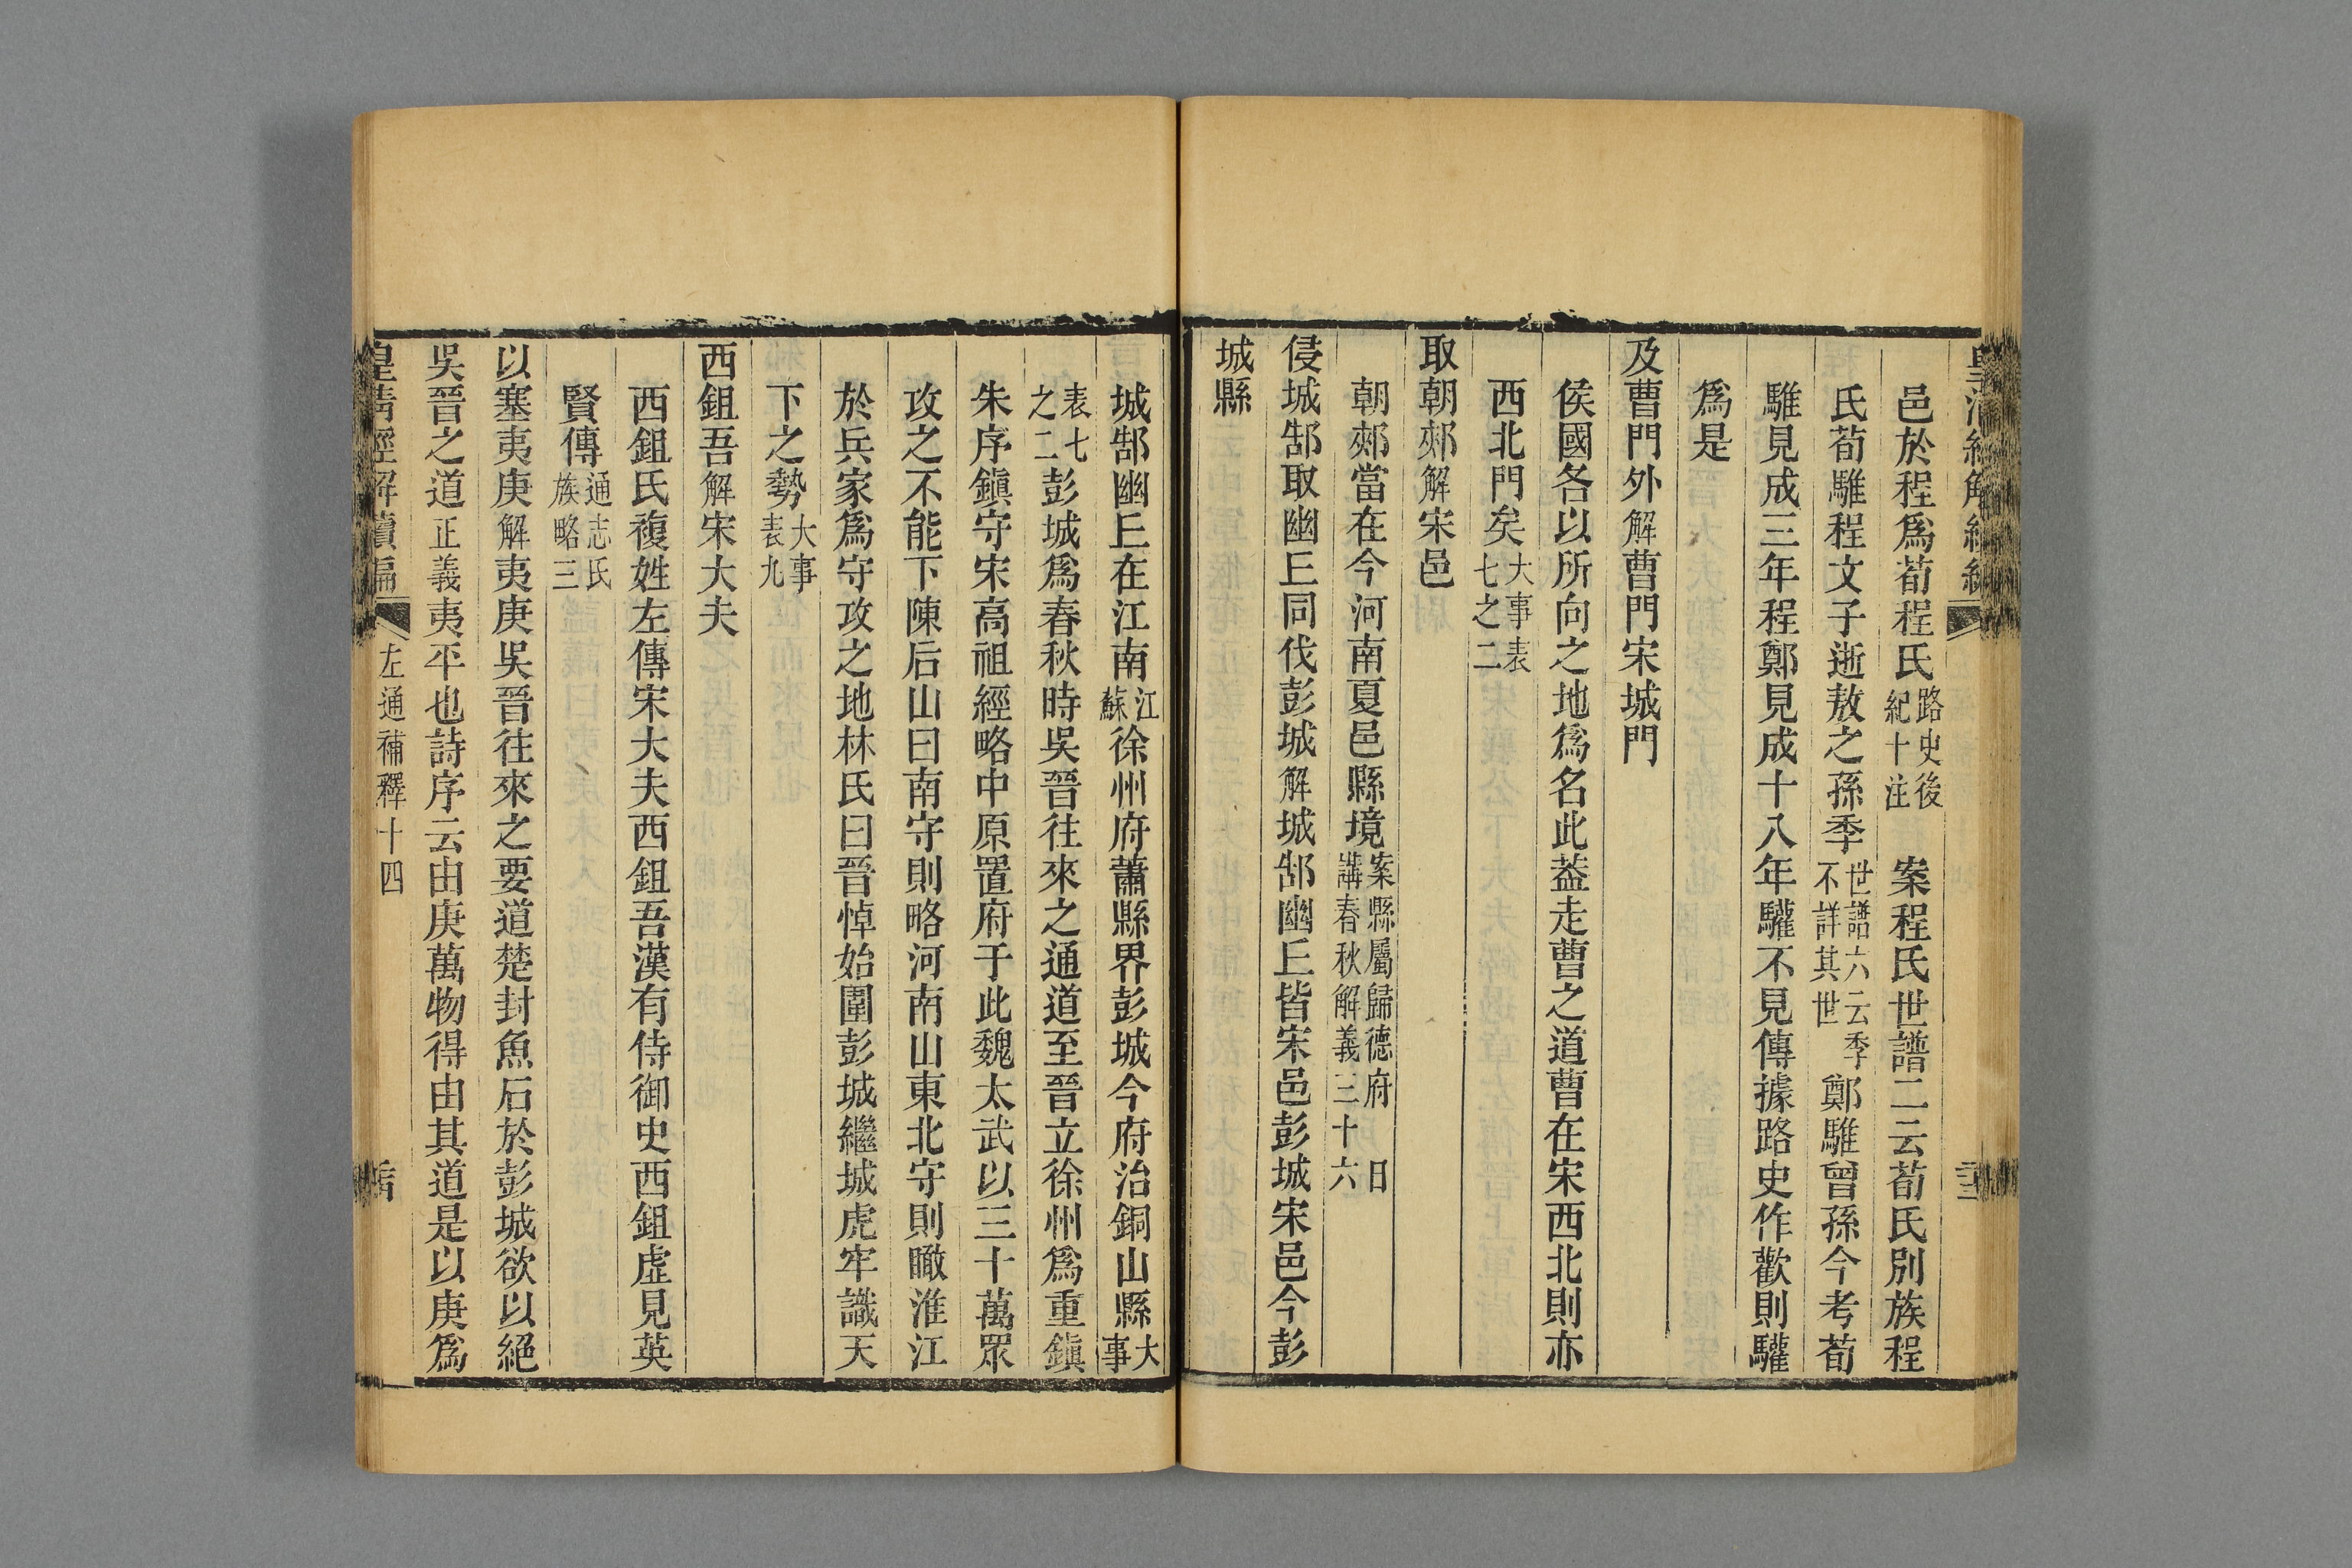 邑於程爲荀程氏路史後紀十注　案程氏世譜二云荀氏別族程
氏荀騅程文子逝敖之孫季世譜六云季不詳其世鄭騅曾孫今考荀
騅見成三年程鄭見成十八年驩不見傳據路史作歡則驩
爲是
及曹門外解曹門宋城門
侯國各以所向之地爲名此葢走曹之道曹在宋西北則亦
西北門矣大事表七之二
取朝郟解宋邑
朝郟當在今河南夏邑縣境案縣屬歸德府　日講春秋解義三十六
侵城郜取幽𠀉同伐彭城解城郜幽𠀉皆宋邑彭城宋邑今彭
城縣
城郜幽𠀉在江南江蘇徐州府蕭縣界彭城今府治銅山縣大事
表七之二彭城爲春秋時吳晉往來之通道至晉立徐州爲重鎭
朱序鎭守宋高祖經略中原置府于此魏太武以三十萬眾
攻之不能下陳后山曰南守則略河南山東北守則瞰淮江
於兵家爲守攻之地林氏曰晉悼始圍彭城繼城虎牢識天
下之勢大事表九
西鉏吾解宋大夫
西鉏氏複姓左傳宋大夫西鉏吾漢有侍御史西鉏虛見英
賢傳通志氏族略三
以塞夷庚解夷庚吳晉往來之要道楚封魚石於彭城欲以絕
吳晉之道正義夷平也詩序云由庚萬物得由其道是以庚爲
皇清經解續編　左通補釋十四